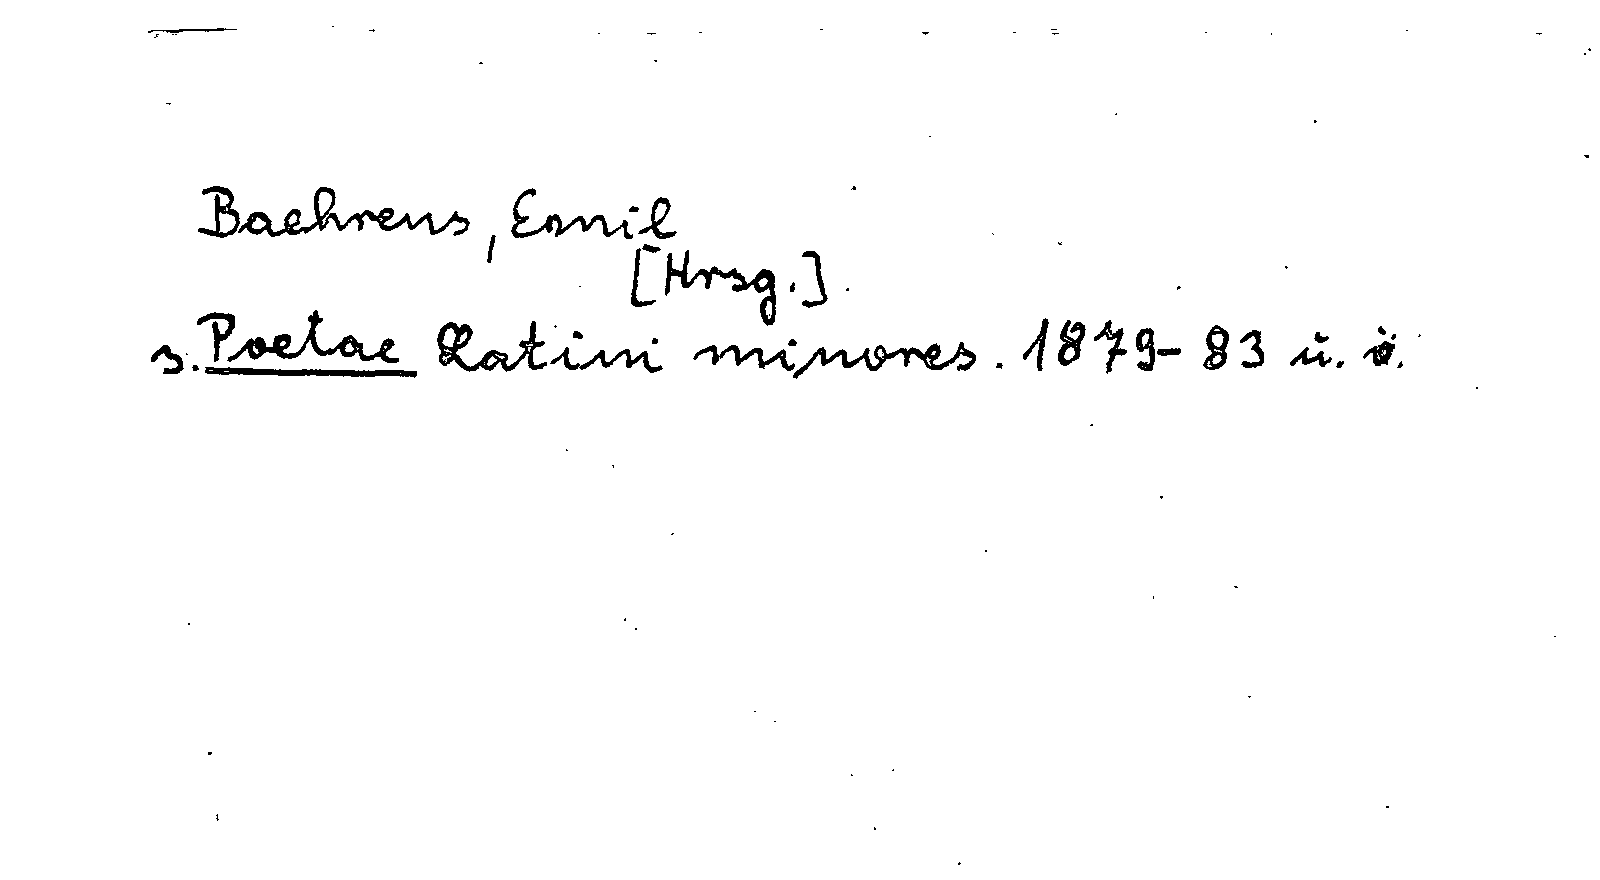 Baehrens, Emil
[Hrsg.]
s. Poetae Latini minores. 1879-83 u. ö.